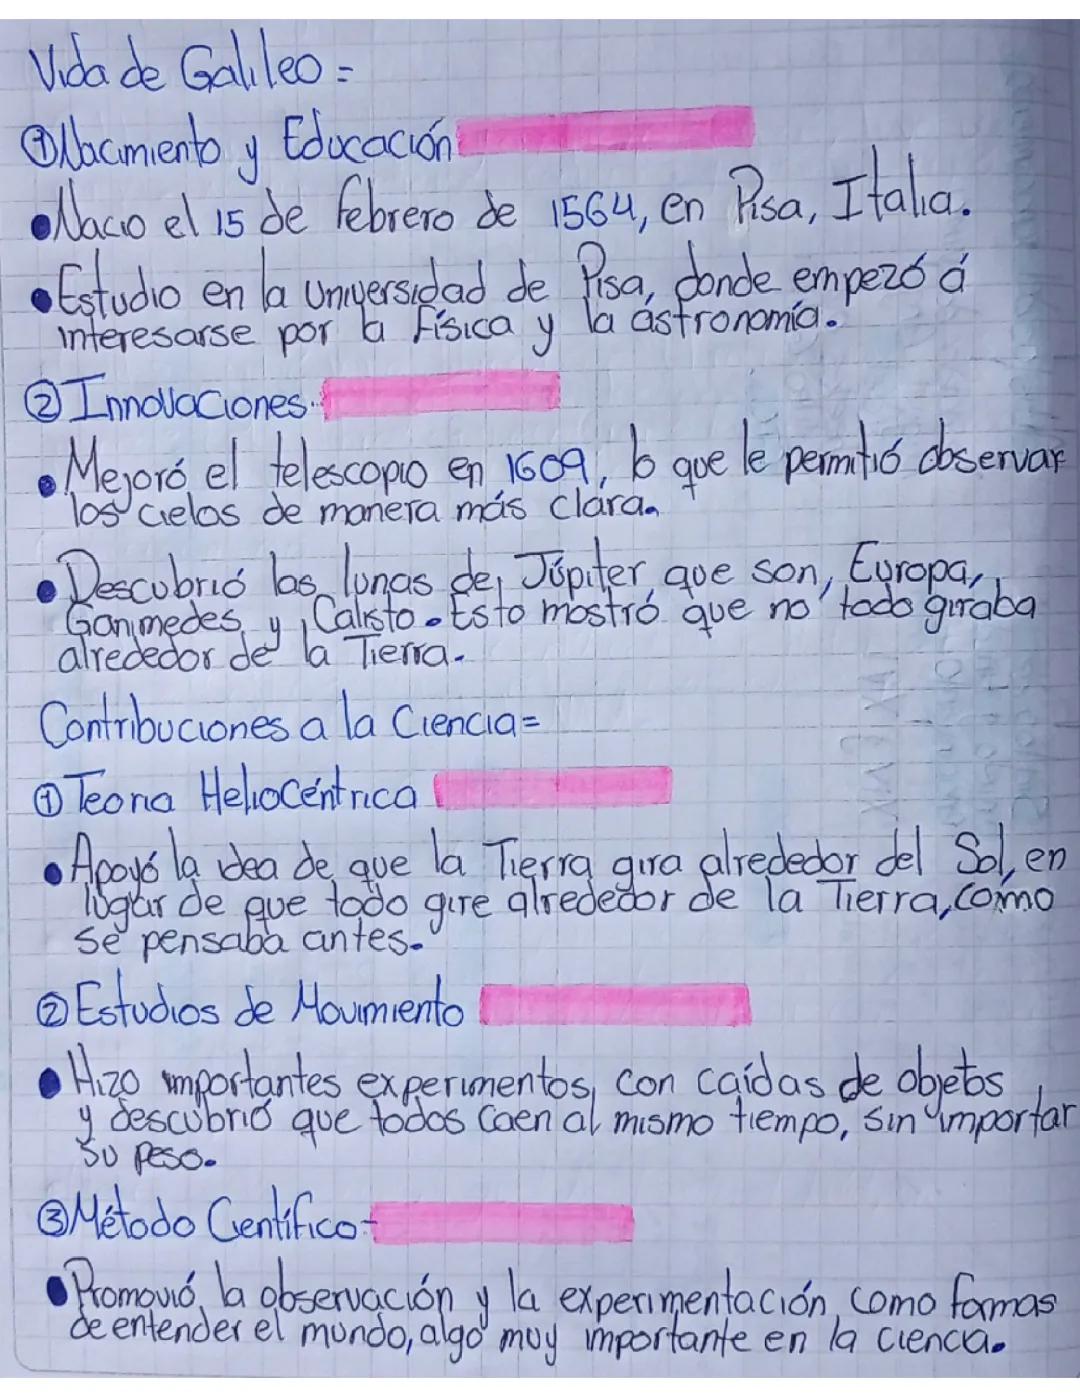 Vida de Galileo =
① Nacimiento y Educación
• Nacio el 15 de febrero de 1564, en Pisa, Italia.
• Estudio en la Universidad de Pisa, donde empezó á
interesarse por la Física y la astronomía.
② Innovaciones.
• Mejoró el telescopio en 1609, lo que le permitió observar
los cielos de manera más clara.
• Descubrió las lunas de Júpiter que son, Europa,
Ganimedes y Calisto. Esto mostró que no todo giraba
alrededor de la Tierra.
Contribuciones a la Ciencia =
① Teoria Heliocéntrica
• Apoyó la idea de que la Tierra gira alrededor del Sol, en
lugar de que todo gire alrededor de la Tierra, como
se pensaba antes.
② Estudios de Movimiento
• Hizo importantes experimentos, con caídas de objetos
y descubrió que todos caen al mismo tiempo, sin importar
su peso.
③ Método Científico -
• Promovió, la observación y la experimentación como formas
de entender el mundo, algo muy importante en la ciencia.